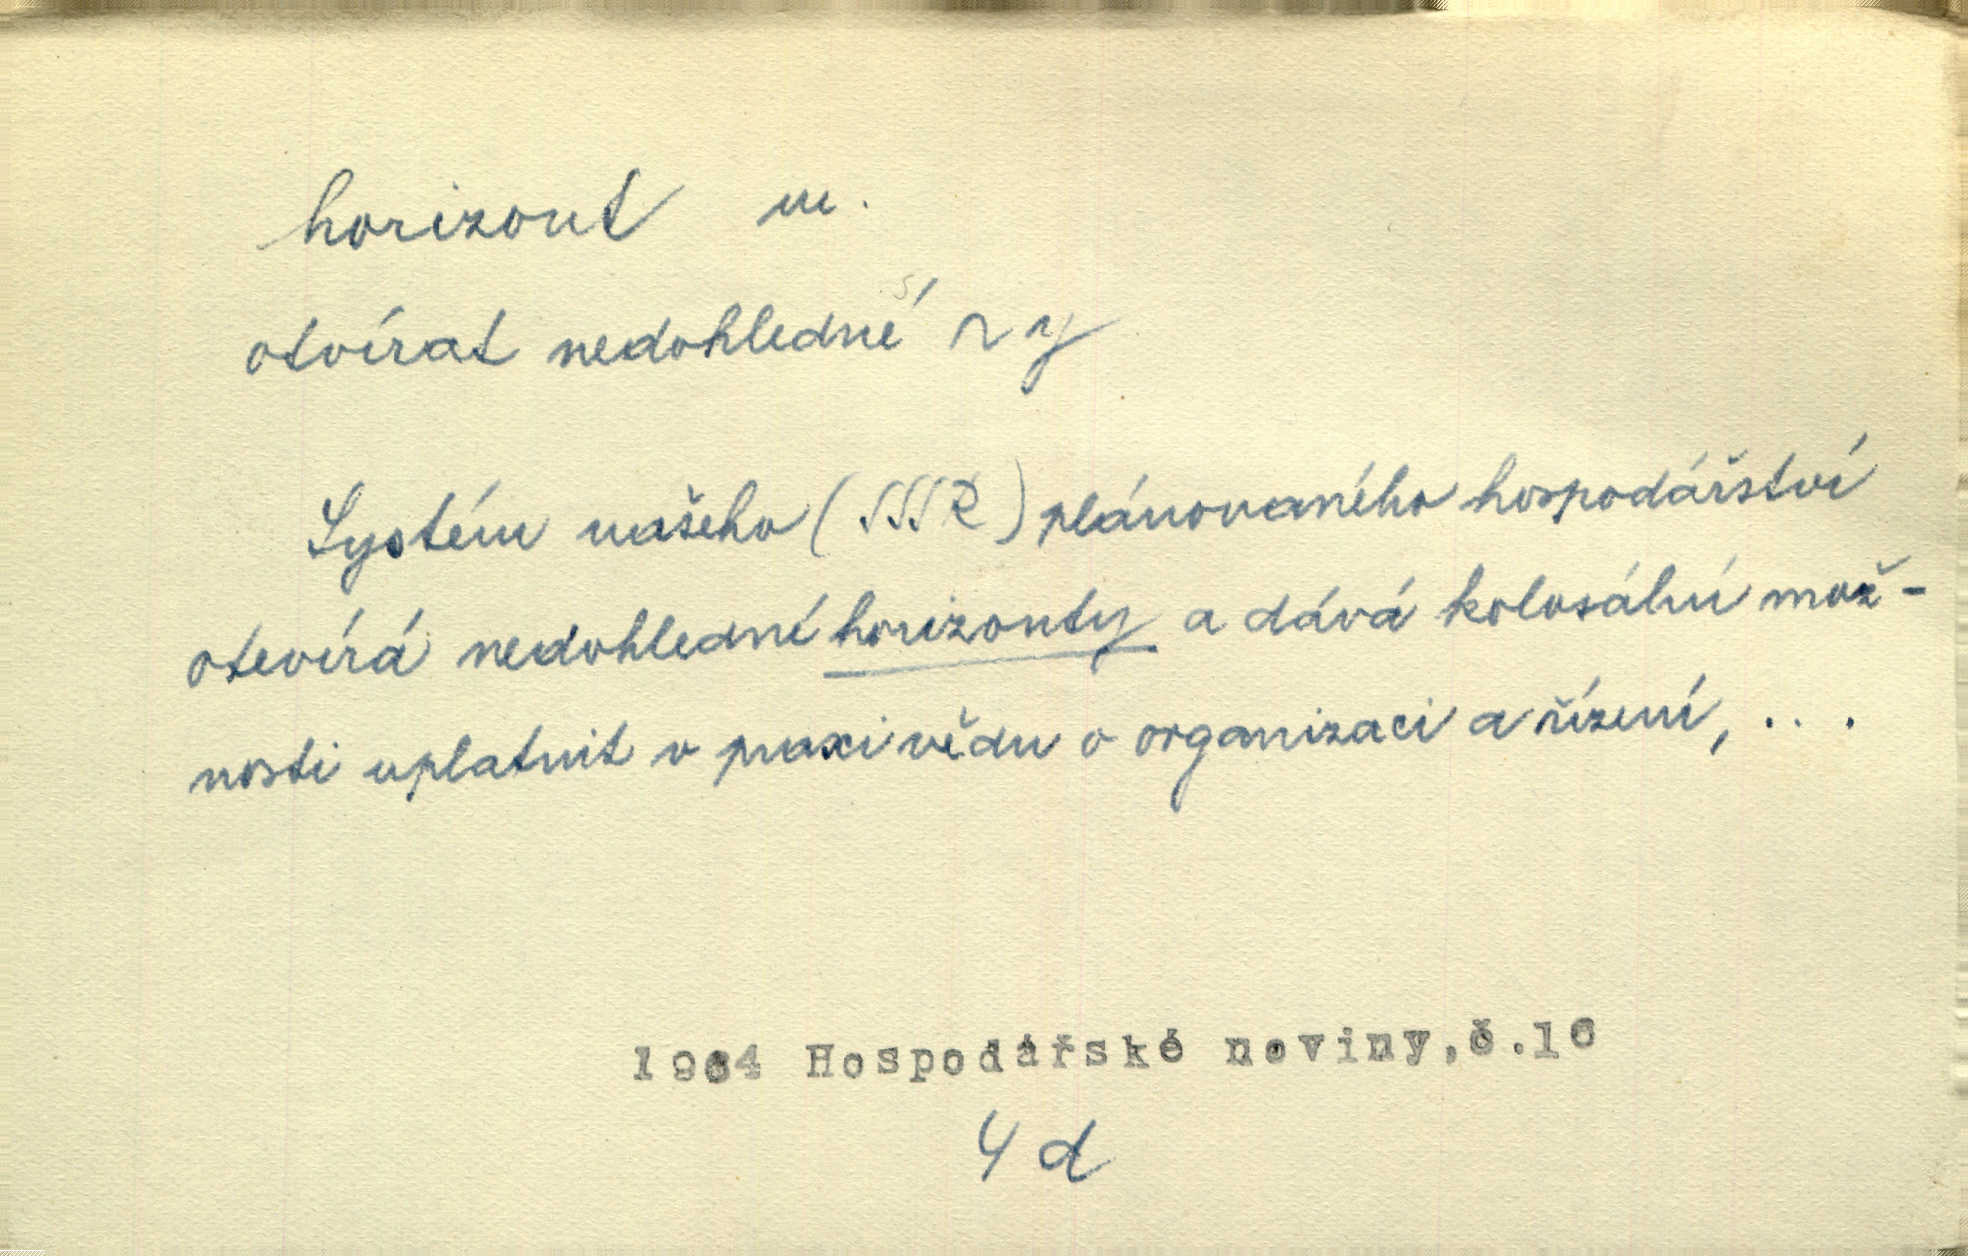 horizont m.
otvírat nedohledné ~y
Systém našeho (SSSR) plánovaného hospodářství
otevírá nedohledné horizonty a dává kolosální mož-
nosti uplatnit v praxi vědu o organizaci a řízení, ...
1964 Hospodářské noviny, č.16
4 d